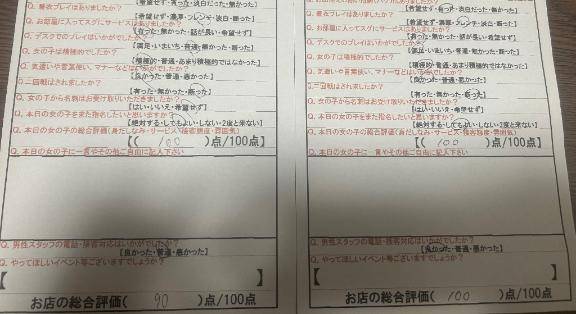 Q. 最後プレイはありましたか?
[希望せず・有った・淡白だった・無かった]
[希望せず・濃厚・フレンチ・淡白・断った]
Q. お部屋に入ってスグにサービスはありましたか?
[有った・無かった・話が長い・希望せず]
Q. デスクでのプレイはいかがでしたか?
[満足・いまいち・普通・無かった・断った]
Q. 女の子は積極的でしたか?
[積極的・普通・あまり積極的ではなかった]
Q. 気遣いや言葉使い、マナーなどはいかがでしたか?
[良かった・普通・悪かった]
Q. 二回戦はされましたか?
[有った・無かった・断った]
Q. 女の子から名刺はお受け取りいただきましたか?
[はい・いいえ・希望せず]
Q. 本日の女の子をまた指名したいと思いますか?
[絶対する・してもよい・しない・2度と来ない]
Q. 本日の女の子の総合評価(身だしなみ・サービス・接客態度・雰囲気)
【( 100 )点/100点】
Q. 本日の女の子に一言やその他ご自由に記入下さい
Q. 男性スタッフの電話・接客対応はいかがでしたか?
[良かった・普通・悪かった]
Q. やってほしいイベント等ございますでしょうか?
【 】
お店の総合評価( 90 )点/100点
[希望せず・有った・淡白だった・無かった]
Q. 最後プレイはありましたか?
[希望せず・濃厚・フレンチ・淡白・断った]
Q. お部屋に入ってスグにサービスはありましたか?
[有った・無かった・話が長い・希望せず]
Q. デスクでのプレイはいかがでしたか?
[満足・いまいち・普通・無かった・断った]
Q. 女の子は積極的でしたか?
[積極的・普通・あまり積極的ではなかった]
Q. 気遣いや言葉使い、マナーなどはいかがでしたか?
[良かった・普通・悪かった]
Q. 二回戦はされましたか?
[有った・無かった・断った]
Q. 女の子から名刺はお受け取りいただきましたか?
[はい・いいえ・希望せず]
Q. 本日の女の子をまた指名したいと思いますか?
[絶対する・してもよい・しない・2度と来ない]
Q. 本日の女の子の総合評価(身だしなみ・サービス・接客態度・雰囲気)
【( 100 )点/100点】
Q. 本日の女の子に一言やその他ご自由に記入下さい
Q. 男性スタッフの電話・接客対応はいかがでしたか?
[良かった・普通・悪かった]
Q. やってほしいイベント等ございますでしょうか?
【 】
お店の総合評価( 100 )点/100点